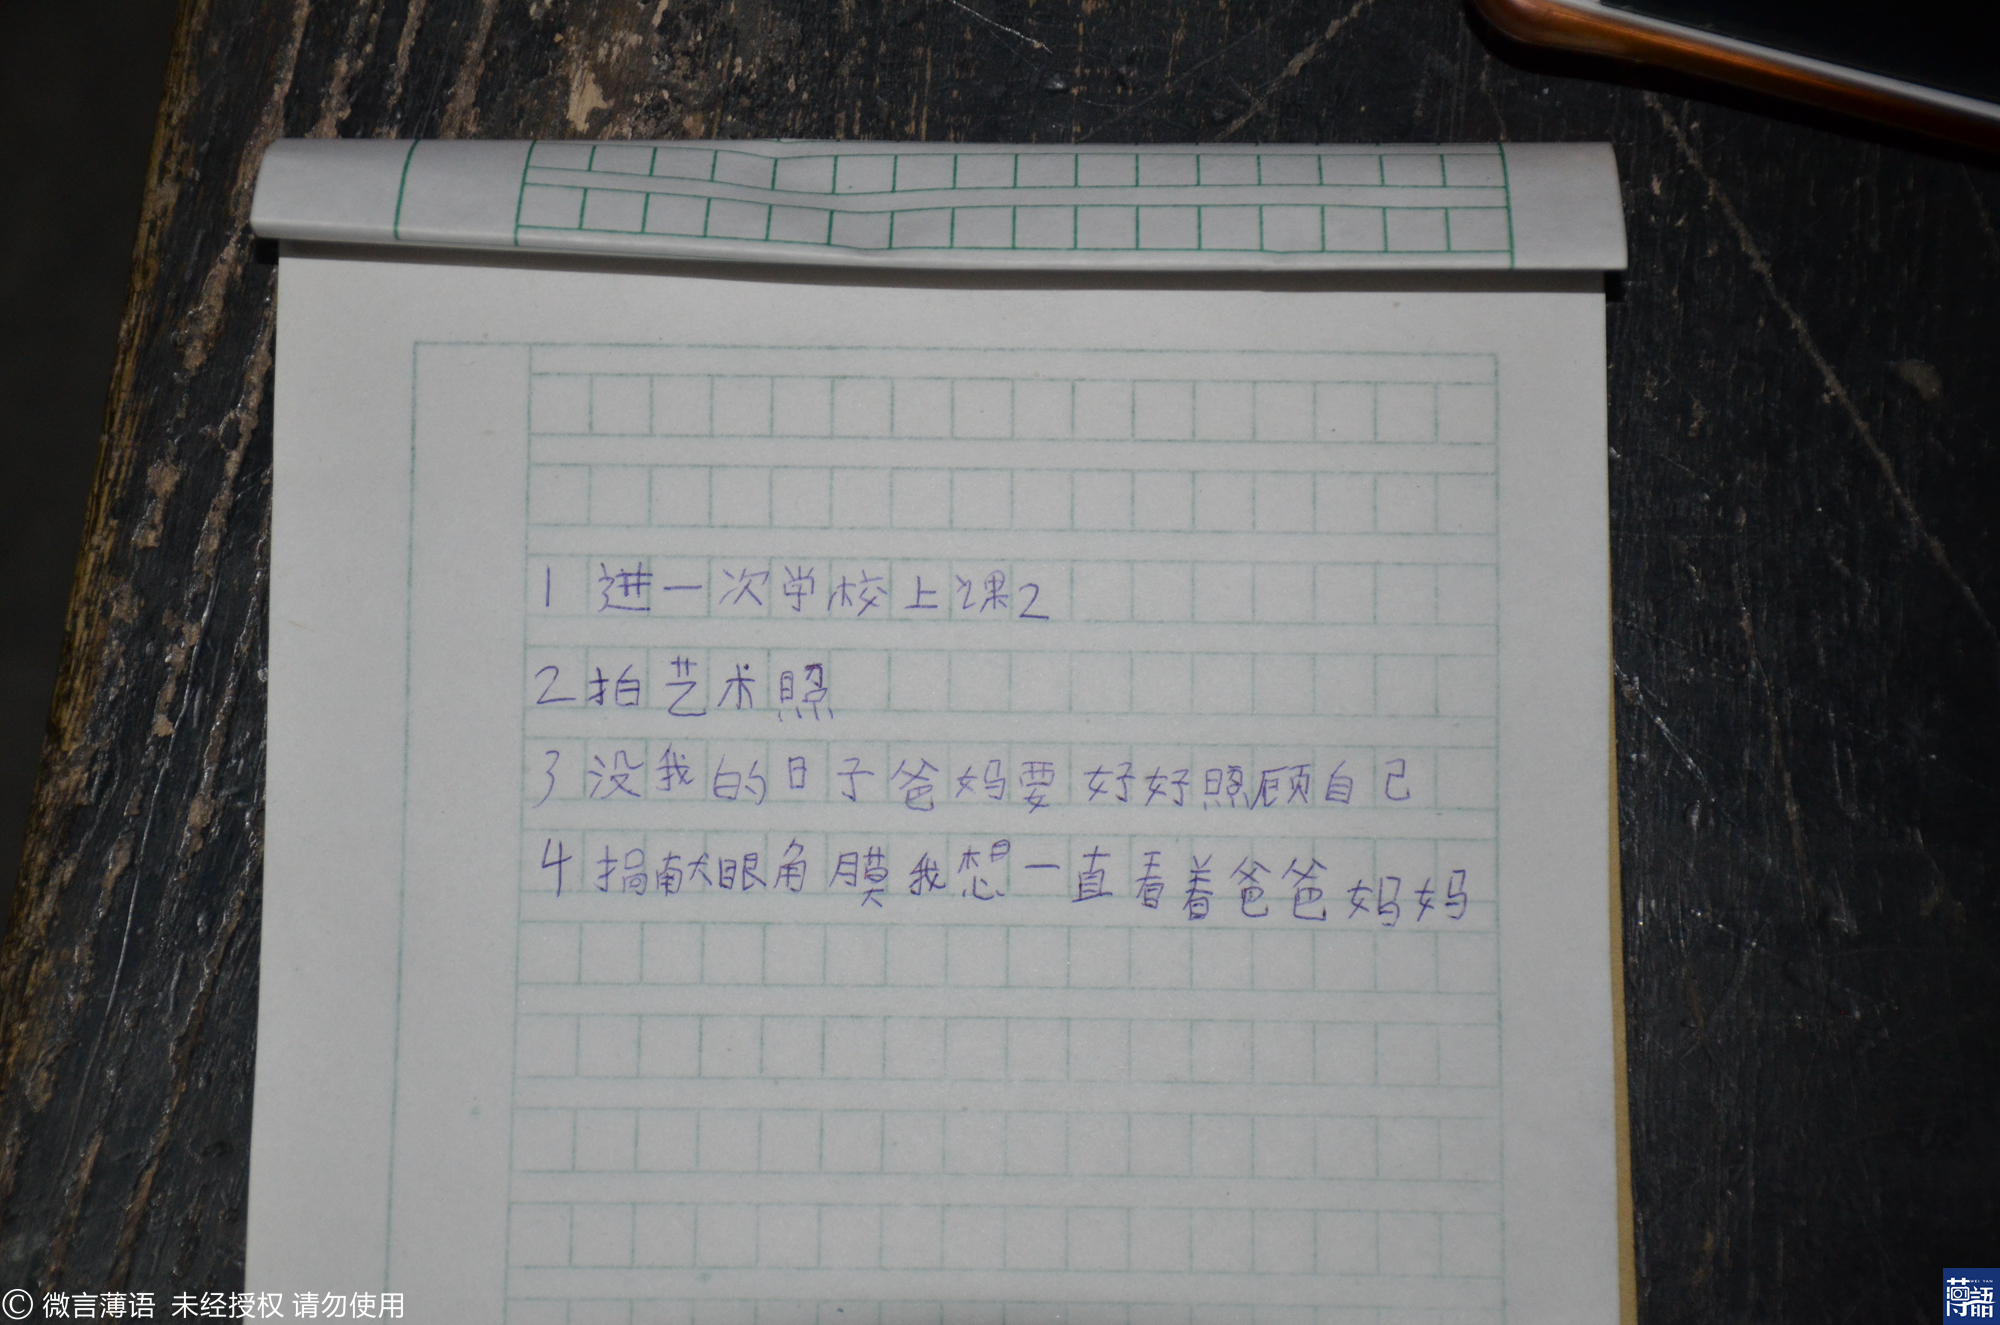 1 进一次学校上课2
2拍艺术照
3 没我的日子爸妈要好好照顾自己
4 捐献眼角膜我想一直看着爸爸妈妈
© 微言薄语 未经授权 请勿使用
WEI YAN
薄語